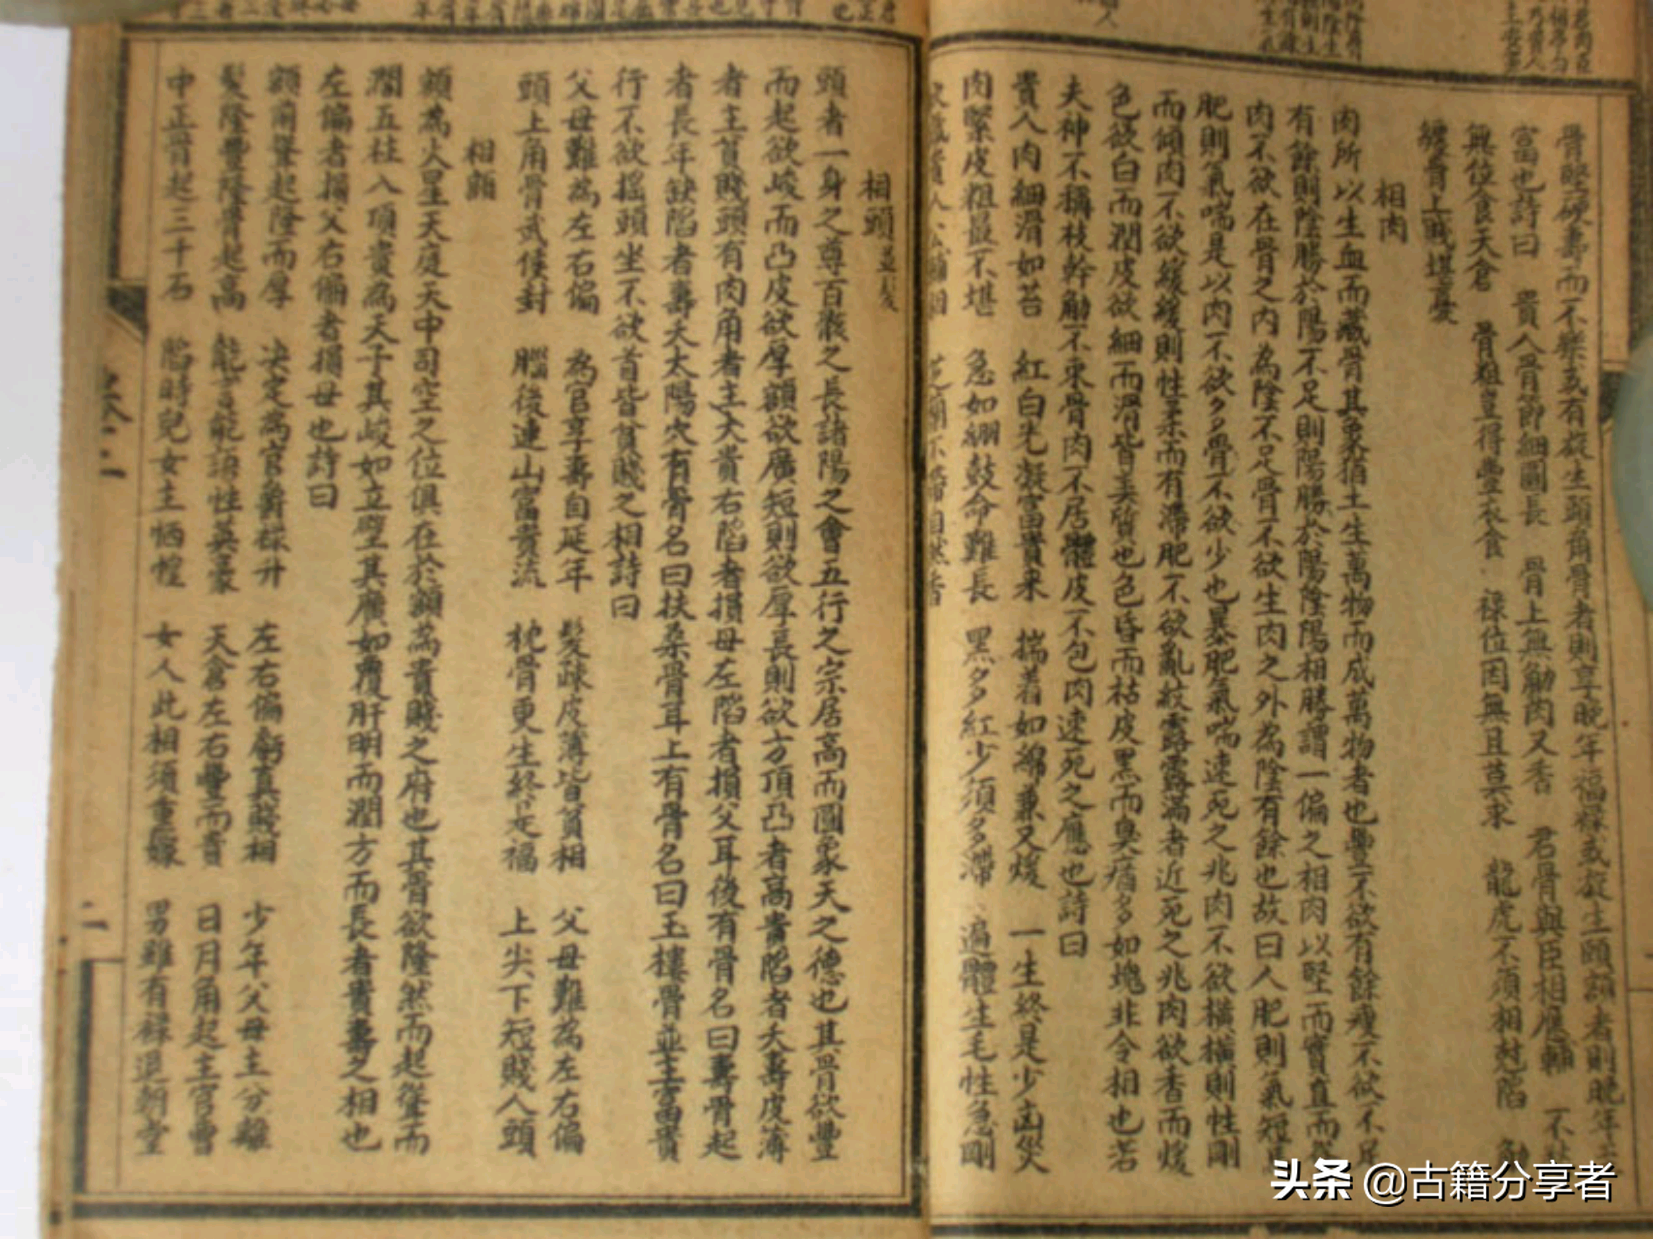 骨堅硬壽而不樂或有旋生頭角骨者則享晚年福祿或旋生頤額者則晚年
富也詩曰 貴人骨節細圓長 骨上無觔肉又香 君骨與臣相應輔 不
無位食天倉 骨粗豈得豐衣食 祿位因無且莫求 龍虎不須相尅陷
纏骨上賤堪憂
相肉
肉所以生血而藏骨其象猶土生萬物而成萬物者也豐不欲有餘瘦不欲不足
有餘則陰勝於陽不足則陽勝於陰陰陽相勝謂一偏之相肉以堅而實直而
肉不欲在骨之內為陰不足骨不欲生肉之外為陰有餘也故曰人肥則氣短
肥則氣喘是以肉不欲多骨不欲少也暴肥氣喘速死之兆肉不欲橫橫則性剛
而傾肉不欲緩緩則性柔而有滯肥不欲亂紋露露滿者近死之兆肉欲香而煖
色欲白而潤皮欲細而滑皆美質也色昏而枯皮黑而臭痏多如塊非令相也若
夫神不稱枝幹觔不束骨肉不居體皮不包肉速死之應也詩曰
貴人肉細滑如苔 紅白光凝富貴來 揣着如綿兼又煖 一生終是少凶災
肉緊皮粗最不堪 急如綳鼓命難長 黑多紅少須多滯 遍體生毛性急剛
相頭並髮
頭者一身之尊百骸之長諸陽之會五行之宗居高而圓象天之德也其骨欲豐
而起欲峻而凸皮欲厚額欲廣短則欲厚長則欲方頂凸者高貴陷者夭壽皮薄
者主貧賤頭有肉角者主大貴右陷者損母左陷者損父耳後有骨名曰壽骨起
者長年缺陷者壽夭太陽穴有骨名曰扶桑骨耳上有骨名曰玉樓骨並主富貴
行不欲搖頭坐不欲首皆貧賤之相詩曰
父母難為左右偏 為官享壽自延年 髮疎皮薄皆貧相 父母難為左右偏
頭上角骨武侯封 腦後連山富貴流 枕骨更生終是福 上尖下短賤人頭
相額
額為火星天庭天中司空之位俱在於額為貴賤之府也其骨欲隆然而起聳而
濶五柱入頂貴為天子其峻如立壁其廣如覆肝明而潤方而長者貴壽之相也
左偏者損父右偏者損母也詩曰
額前聳起隆而厚 決定為官爵祿升 左右偏虧真賤相 少年父母主分離
髮隆豐隆骨起高 能言能語性英豪 天倉左右豐而貴 日月角起主官曹
中正骨起三千石 陷時兒女主恓惶 女人此相須重嫁 男雖有祿退朝堂
卷二
二
头条 @古籍分享者